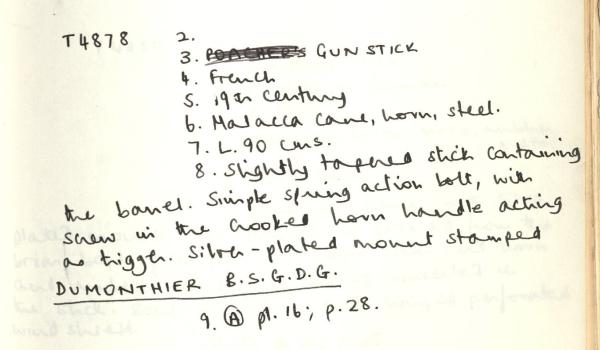 T4878 2.
3. POACHER'S GUN STICK
4. French
5. 19th century
6. Malacca cane, horn, steel.
7. L. 90 cms.
8. Slightly tapered stick containing
the barrel. Simple spring action bolt, with
screw in the crooked horn handle acting
as trigger. Silver-plated mount stamped
DUMONTHIER B.S.G.D.G.
9. Ⓐ pl. 16; p. 28.